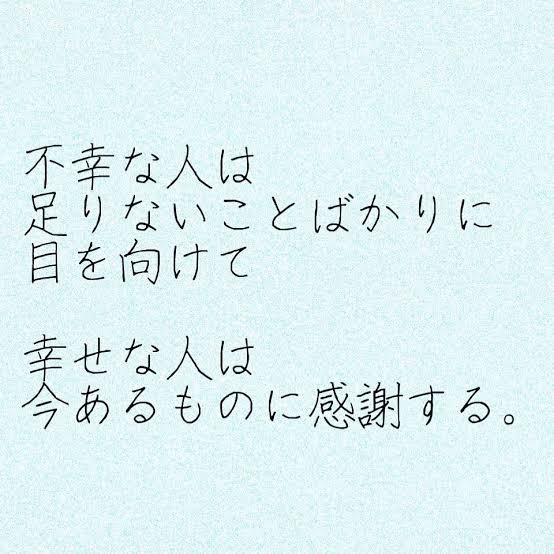 不幸な人は
足りないことばかりに
目を向けて
幸せな人は
今あるものに感謝する。